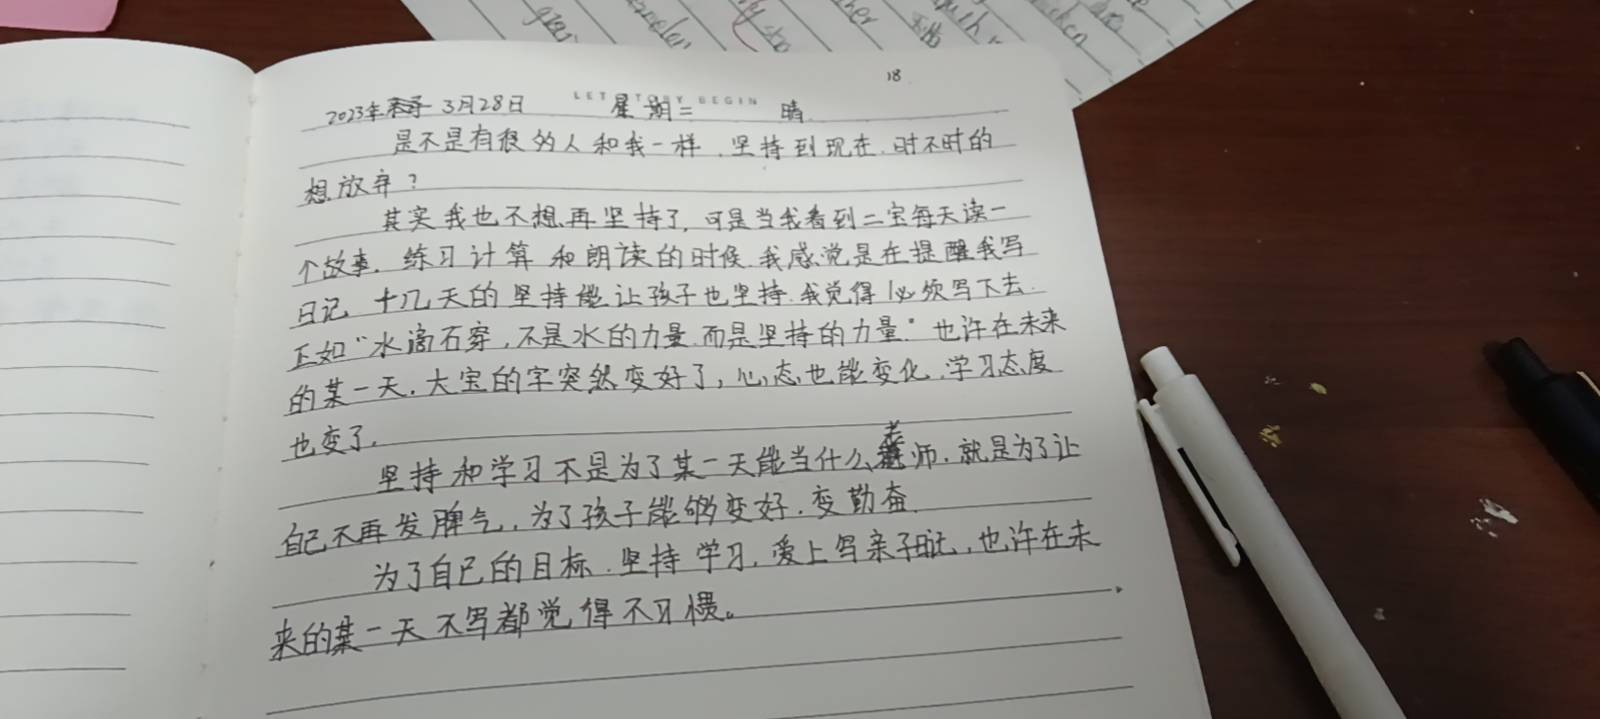 18
LET STORY BEGIN
2023年 3月28日 星期二 晴
是不是有很多人和我一样,坚持到现在,时不时的
想放弃?
其实我也不想再坚持了,可是当我看到二宝每天读一
个故事,练习计算和朗读的时候,我感觉是在提醒我写
日记,十几天的坚持能让孩子也坚持,我觉得必须写下去.
正如“水滴石穿,不是水的力量,而是坚持的力量.”也许在未来
的某一天,大宝的字突然变好了,心态也能变化,学习态度
也变了.
坚持和学习不是为了某一天能当什么老师,就是为了让
自己不再发脾气,为了孩子能够变好,变勤奋.
为了自己的目标,坚持学习,爱上写亲子日记,也许在未
来的某一天不写都觉得不习惯。